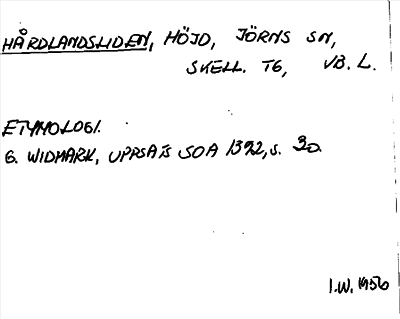 HÅRDLANDSLIDEN, HÖJD, JÖRNS SN,
SKELL. TG, VB. L.
ETYMOLOGI.
G. WIDMARK, UPPSATS SOA 1392, s. 30.
I.W. 1956